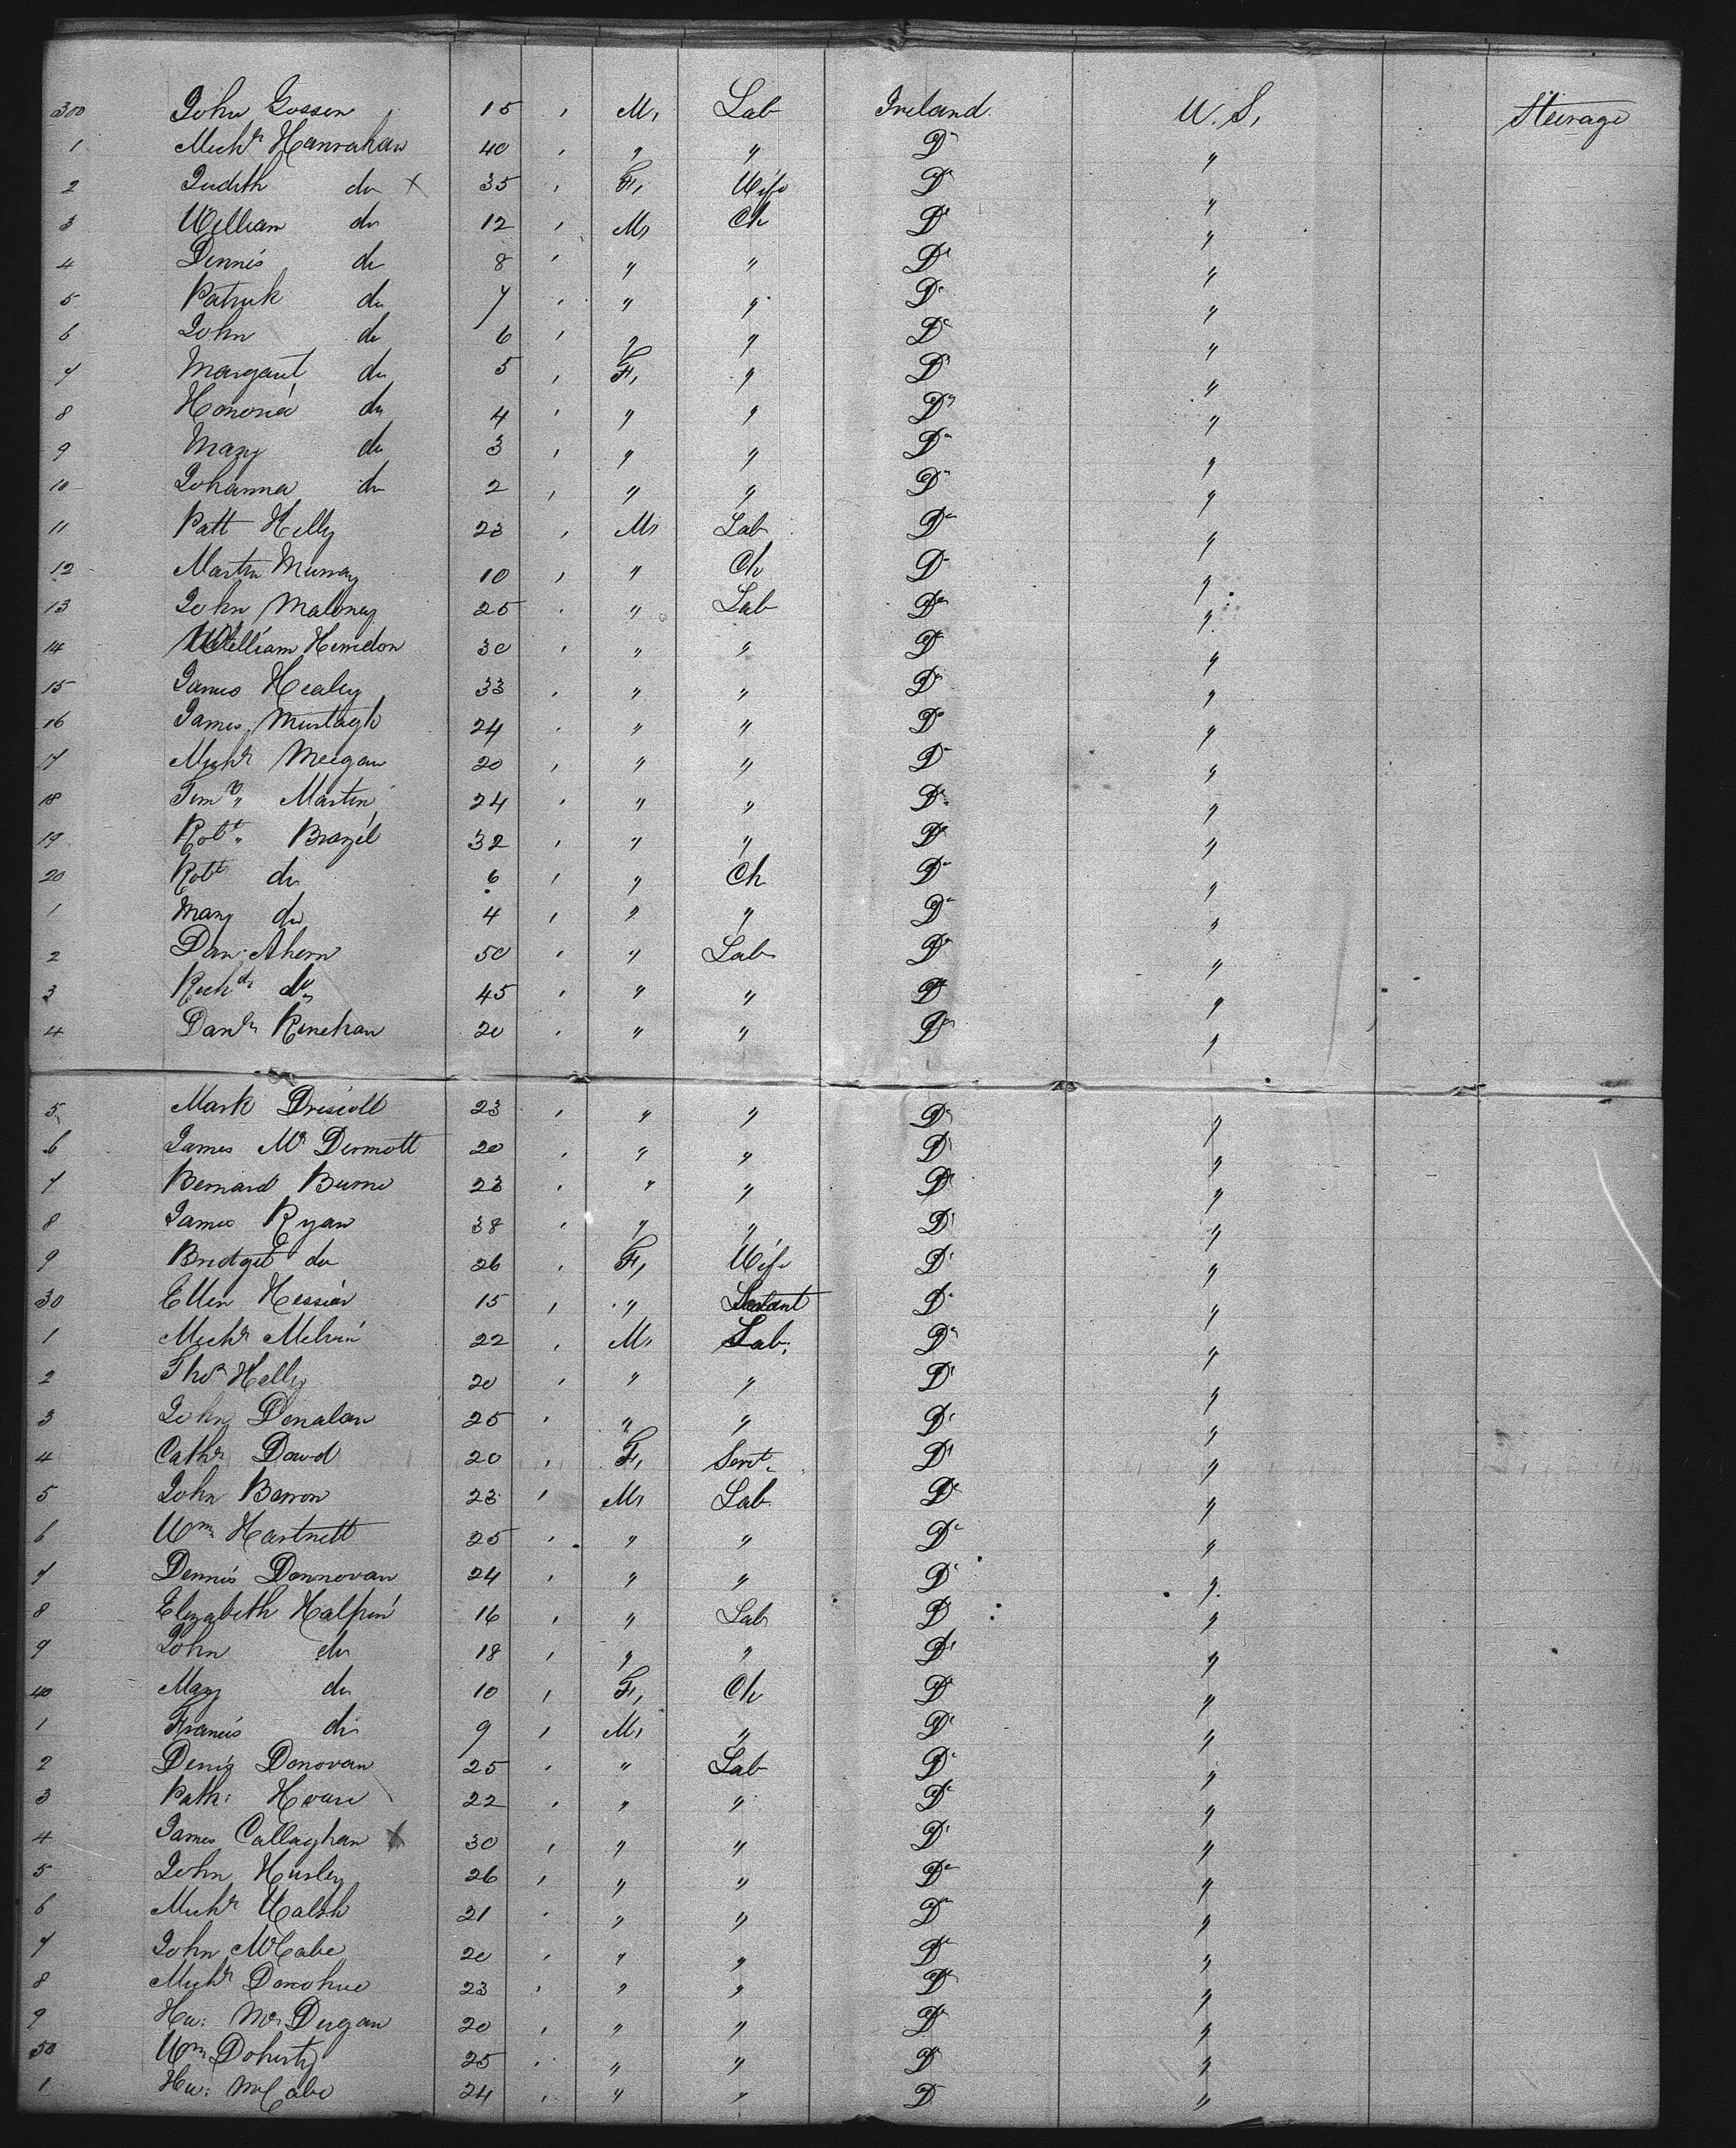 300 John Gossen 15 , M, Lab Ireland. U. S, Steerage
1 Michl Hanrahan 40 , " " Do "
2 Judith do X 35 , F, Wife Do "
3 William do 12 , M, Ch Do "
4 Dennis do 8 , " " Do "
5 Patrick do 7 , " " Do "
6 John do 6 , " " Do "
7 Margaret do 5 , F, " Do "
8 Honoria do 4 , " " Do "
9 Mary do 3 , " " Do "
10 Johanna do 2 , " " Do "
11 Patt Kelly 23 , M, Lab Do "
12 Martin Murray 10 , " Ch Do "
13 John Maloney 25 , " Lab Do "
14 William 30 , " " Do "
15 James Healey 33 , " " Do "
16 James Murtagh 24 , " " Do "
17 Michl Meegan 20 , " " Do "
18 Timy Martin 24 , " " Do "
19 Robt Brazil 32 , " " Do "
20 Robt do 6 , " Ch Do "
1 Mary do 4 , " " Do "
2 Dan Ahern 50 , " Lab Do "
3 Richd do 45 , " " Do "
4 Danl Renehan 20 , " " Do "
5 Mark Driscoll 23 , " " Do "
6 James Mc Dermott 20 , " " Do "
7 Bernard Burne 23 , " " Do "
8 James Ryan 38 , " " Do "
9 Bridget do 26 , F, Wife Do "
30 Ellen Hession 15 , " Do "
1 Michl Melvin 22 , M, Lab, Do "
2 Thos Kelly 20 , " " Do "
3 John Donalan 25 , " " Do "
4 Cathr Dowd 20 , F, Servt Do "
5 John Barron 23 , M, Lab Do "
6 Wm Hartnett 25 , " " Do "
7 Dennis Donnovan 24 , " " Do "
8 Elizabeth Halpin 16 , " Lab Do "
9 John do 18 , " " Do "
40 Mary do 10 , F, Ch Do "
1 Francis do 9 , M, " Do "
2 Denis Donovan 25 , " Lab Do "
3 Patk: 22 , " " Do "
4 James Callaghan X 30 , " " Do "
5 John Hurley 26 , " " Do "
6 Michl Walsh 21 , " " Do "
7 John McCabe 20 , " " Do "
8 Michl Donohue 23 , " " Do "
9 Hu: Mc Dugan 20 , " " Do "
50 Wm Doherty 25 , " " Do "
1 Hu: McCabe 24 , " " Do "